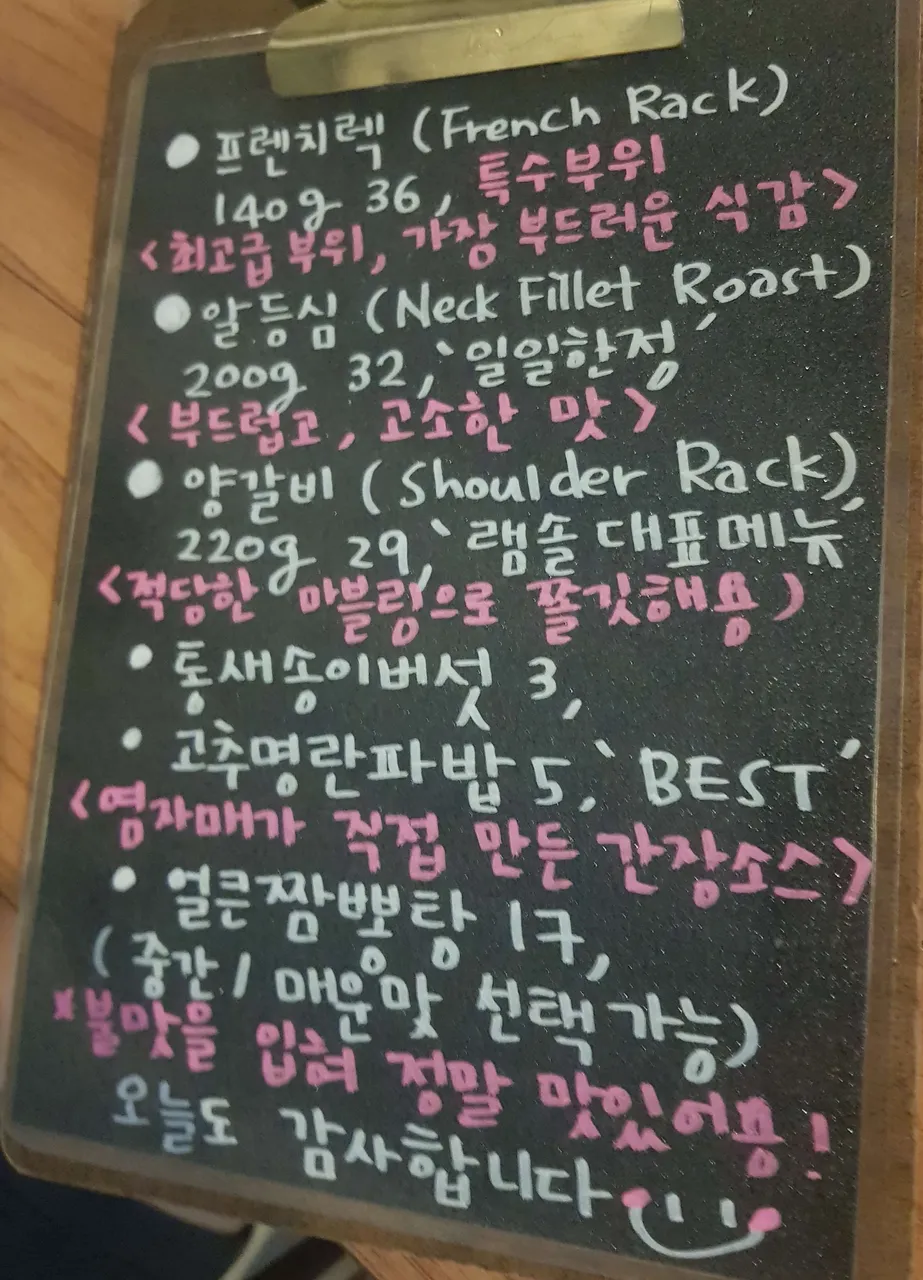 ● 프렌치렉 (French Rack)
140g 36, 특수부위
<최고급 부위, 가장 부드러운 식감>
● 알등심 (Neck Fillet Roast)
200g 32, '일일한정'
< 부드럽고, 고소한 맛 >
● 양갈비 (Shoulder Rack)
220g 29, '램솔 대표메뉴'
<적당한 마블링으로 쫄깃해용>
• 통새송이버섯 3,
• 고추명란파밥 5, 'BEST'
<염자매가 직접 만든 간장소스>
• 얼큰짬뽕탕 17,
(중간/매운맛 선택가능)
*불맛을 입혀 정말 맛있어용!
오늘도 감사합니다